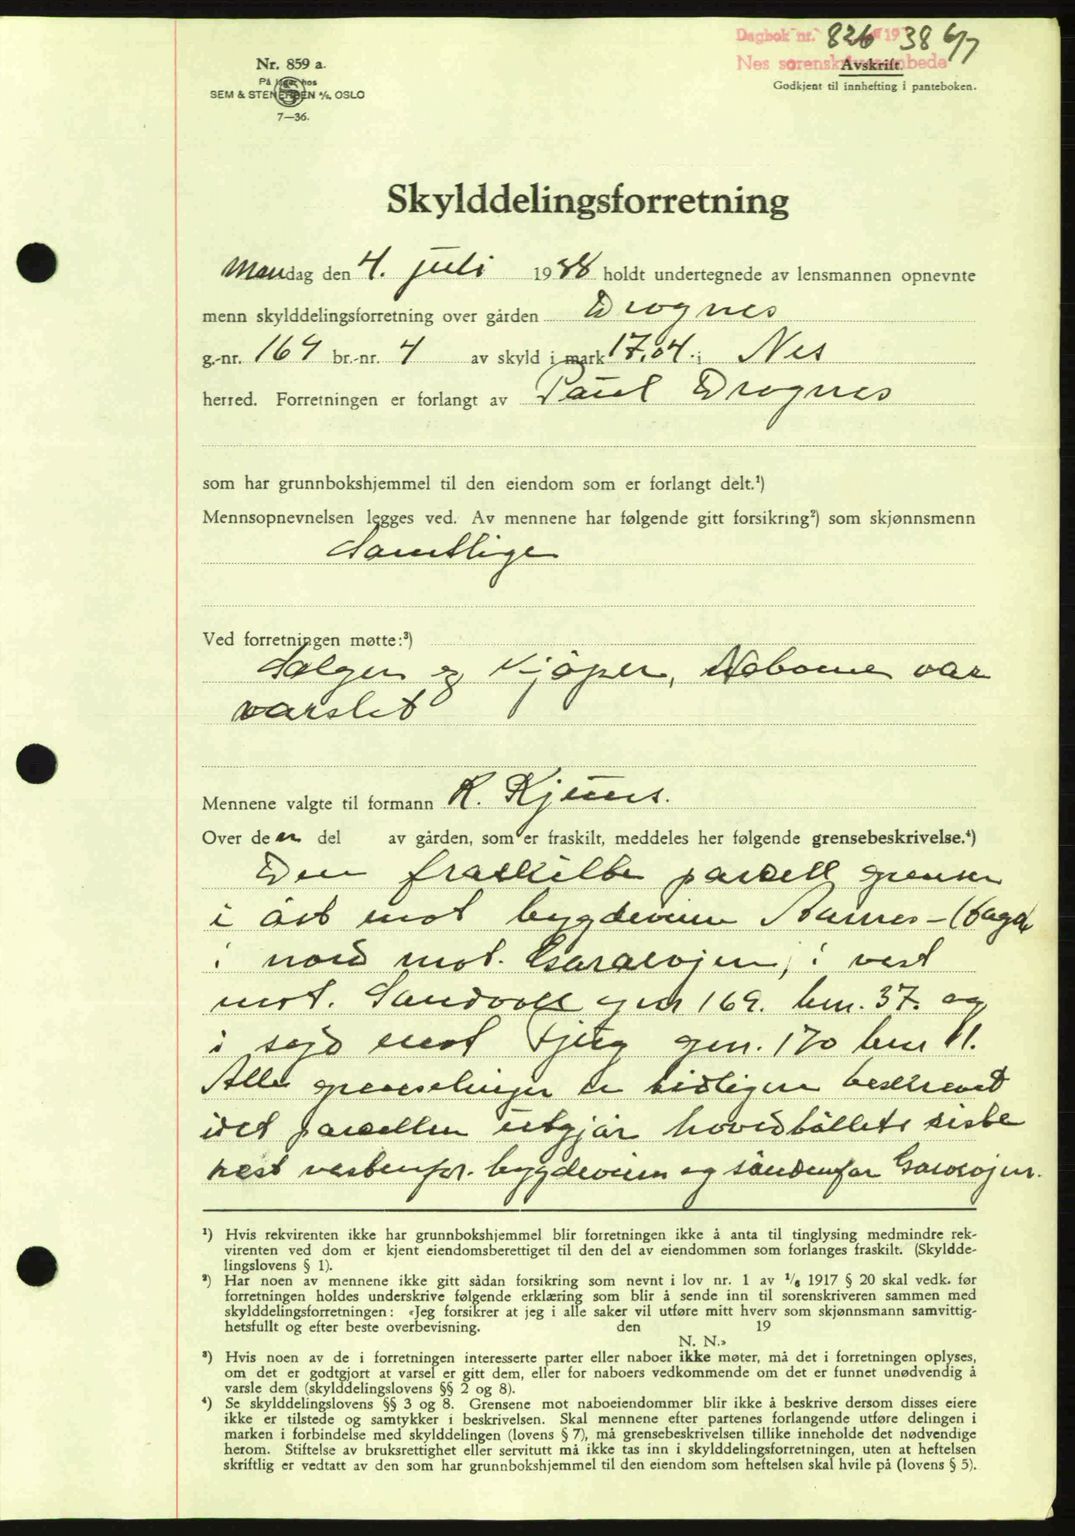 Dagbok nr. 826 19 38 6/7
Nes sorenskriverembede
Avskrift.
Godkjent til innhefting i panteboken.
Nr. 859 a.
På lager hos
SEM & STENERSEN A/S, OSLO
7—36.
Skylddelingsforretning
Mandag den 4. juli 1938 holdt undertegnede av lensmannen opnevnte
menn skylddelingsforretning over gården Drognes
g.-nr. 169 br.-nr. 4 av skyld i mark 17.04 i Nes
herred. Forretningen er forlangt av Paul Drognes
som har grunnbokshjemmel til den eiendom som er forlangt delt.¹)
Mennsopnevnelsen legges ved. Av mennene har følgende gitt forsikring²) som skjønnsmenn
Samtlige
Ved forretningen møtte:³)
Selger og kjøper, Naboene var
varslet
Mennene valgte til formann K. Kjuus.
Over den del av gården, som er fraskilt, meddeles her følgende grensebeskrivelse.⁴)
Den fraskilte parsell grenser
i øst mot bygdeveien Aarnes-Haga
i nord mot i vest
mot. Sandvoll gnr 169. bnr. 37. og
i syd mot gnr. 170 bnr 11.
Alle grenselinjer er tidligere beskrevet
idet parsellen utgjør hovedbøllets siste
rest vestenfor bygdeveien og søndenfor
¹) Hvis rekvirenten ikke har grunnbokshjemmel blir forretningen ikke å anta til tinglysing medmindre rek-
virenten ved dom er kjent eiendomsberettiget til den del av eiendommen som forlanges fraskilt. (Skyldde-
lingslovens § 1).
²) Har noen av mennene ikke gitt sådan forsikring som nevnt i lov nr. 1 av ¹/₆ 1917 § 20 skal vedk. før
forretningen holdes underskrive følgende erklæring som blir å sende inn til sorenskriveren sammen med
skylddelingsforretningen: «Jeg forsikrer at jeg i alle saker vil utføre mitt hverv som skjønnsmann samvittig-
hetsfullt og efter beste overbevisning. den 19
N. N.»
³) Hvis noen av de i forretningen interesserte parter eller naboer ikke møter, må det i forretningen oplyses,
om det er godtgjort at varsel er gitt dem, eller for naboers vedkommende om det er funnet unødvendig å
varsle dem (skylddelingslovens §§ 2 og 8).
⁴) Se skylddelingslovens §§ 3 og 8. Grensene mot naboeiendommer blir ikke å beskrive dersom disses eiere
ikke er tilstede og samtykker i beskrivelsen. Skal mennene efter partenes forlangende utføre delingen i
marken i forbindelse med skylddelingen (lovens § 7), må grensebeskrivelsen tillike inneholde det nødvendige
herom. Stiftelse av bruksrettighet eller servitutt må ikke tas inn i skylddelingsforretningen, uten at heftelsen
skriftlig er vedtatt av den som har grunnbokshjemmel til den eiendom som heftelsen skal hvile på (lovens § 5).